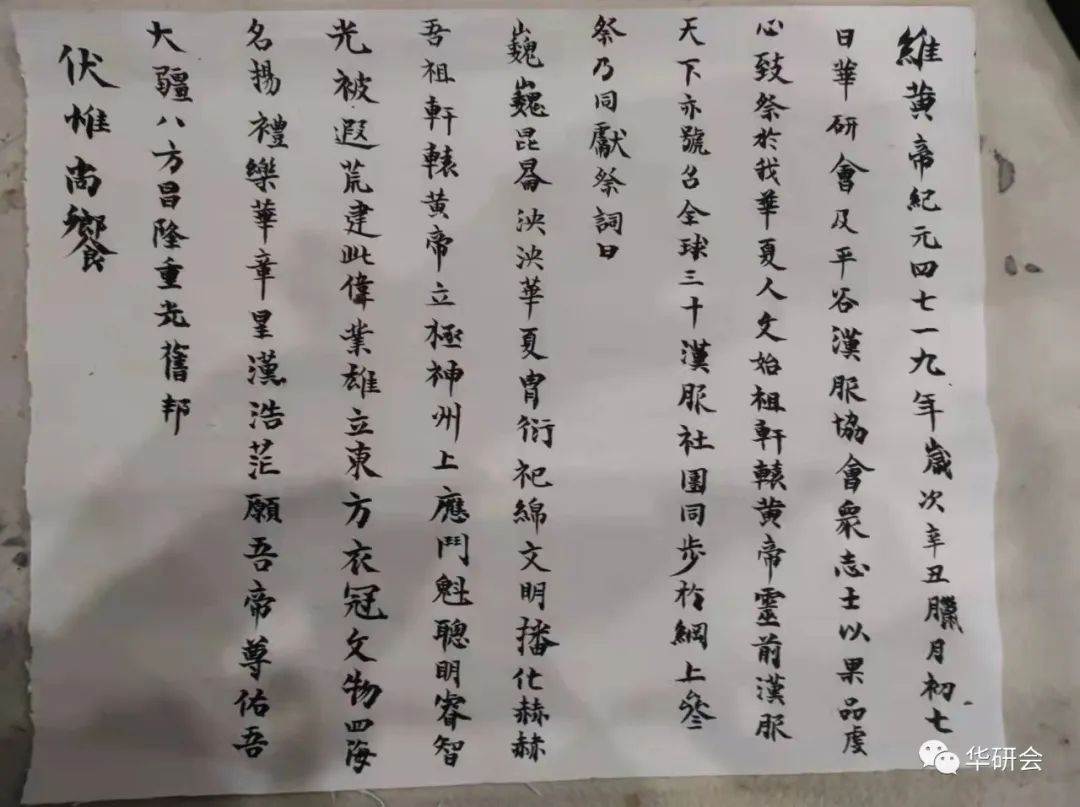 維黄帝紀元四七一九年歲次辛丑臘月初七
日華研會及平谷漢服協會衆志士以果品虔
心致祭於我華夏人文始祖軒轅黄帝靈前漢服
天下亦號召全球三十漢服社團同步於網上參
祭乃同獻祭詞曰
巍巍昆侖泱泱華夏胄衍祀綿文明播化赫赫
吾祖軒轅黄帝立極神州上應鬥魁聰明睿智
光被遐荒建此偉業雄立東方衣冠文物四海
名揚禮樂華章星漢浩茫願吾帝尊佑吾
大疆八方昌隆重光舊邦
伏惟尚饗
华研会